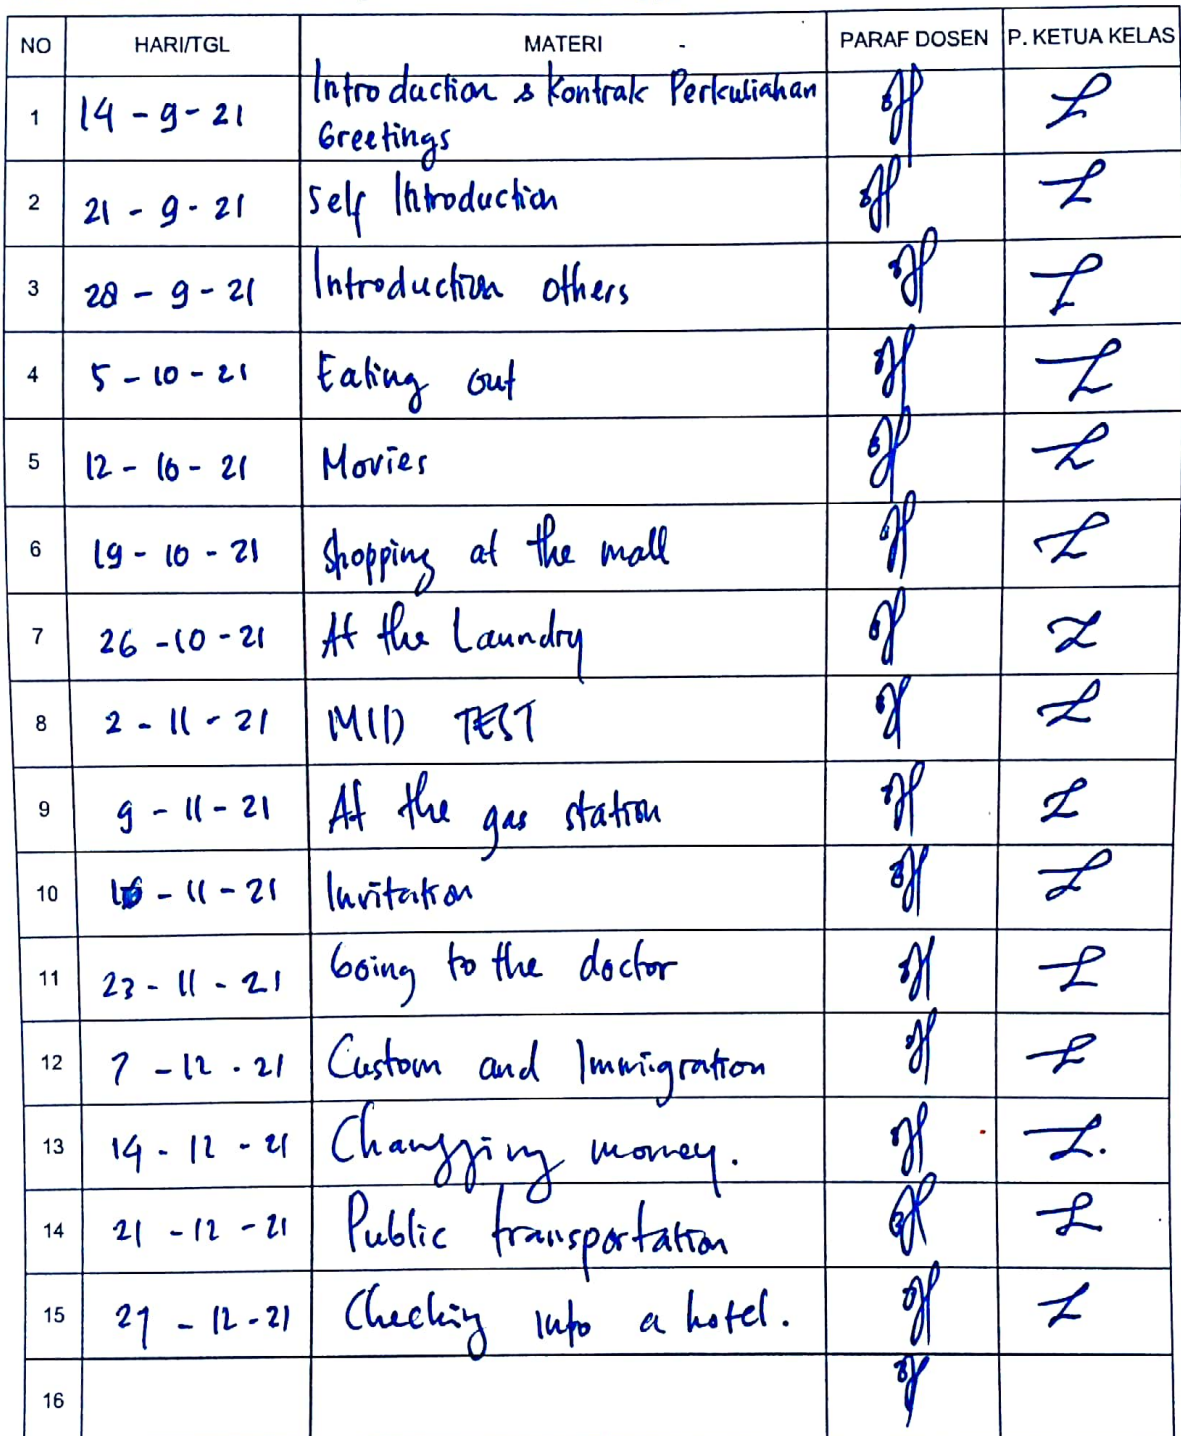 NO HARI/TGL MATERI - PARAF DOSEN P. KETUA KELAS
1 14 - 9 - 21 Introduction & Kontrak Perkuliahan
Greetings
2 21 - 9 - 21 Self Introduction
3 28 - 9 - 21 Introduction others
4 5 - 10 - 21 Eating out
5 12 - 10 - 21 Movies
6 19 - 10 - 21 Shopping at the mall
7 26 - 10 - 21 At the Laundry
8 2 - 11 - 21 MID TEST
9 9 - 11 - 21 At the gas station
10 16 - 11 - 21 Invitation
11 23 - 11 - 21 Going to the doctor
12 7 - 12 - 21 Custom and Immigration
13 14 - 12 - 21 Changging money.
14 21 - 12 - 21 Public transportation
15 27 - 12 - 21 Checking into a hotel.
16